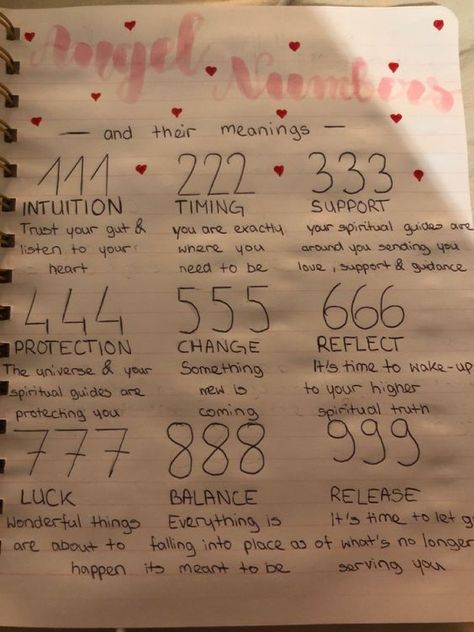 Angel Numbers
— and their meanings —
111 222 333
INTUITION TIMING SUPPORT
Trust your gut & you are exactly your spiritual guides are
listen to your where you around you sending you
heart need to be love, support & guidance
444 555 666
PROTECTION CHANGE REFLECT
The universe & your Something It's time to wake-up
spiritual guides are new is to your higher
protecting you coming spiritual truth
777 888 999
LUCK BALANCE RELEASE
Wonderful things Everything is It's time to let g
are about to falling into place as of what's no longer
happen its meant to be serving you